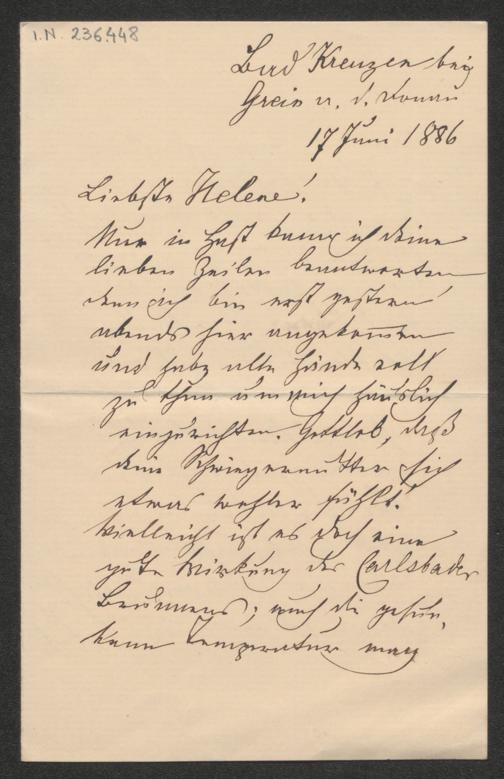 I.N. 236.448
Bad Kreuzen bei
Grein a. d. Donau
17 Juni 1886
Liebste Helene!
Nur in Hast kann ich deine
lieben Zeilen beantworten
denn ich bin erst gestern
abends hier angekommen
und habe alle Hände voll
zu thun um mich häuslich
einzurichten. Gottlob, daß
deine Schwiegermutter sich
etwas wohler fühlt!
Vielleicht ist es doch eine
gute Wirkung des Carlsbader
Brunnens; auch die gesun-
kene Temperatur mag